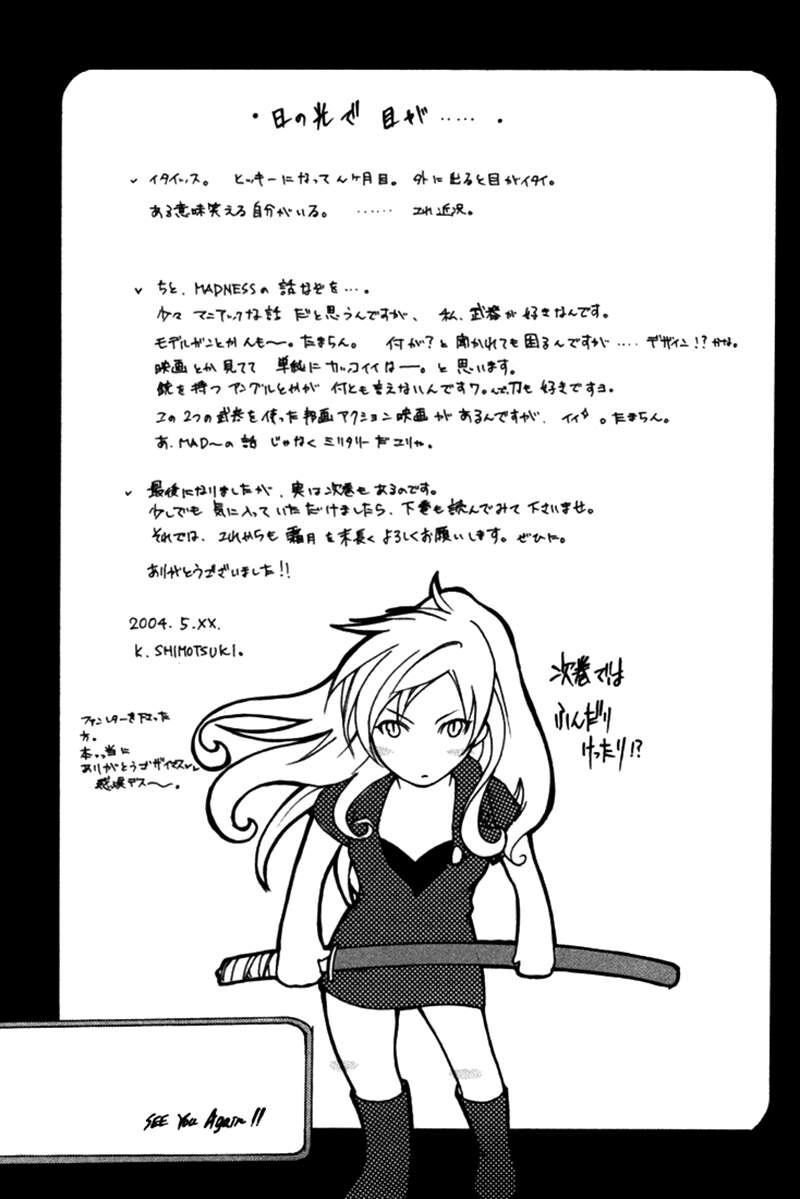 ・日の光で 目が……。
✓ イタイッス。 ヒッキーになってんヶ月目。外に出ると目がイタイ。
ある意味笑える自分がいる。 …… これ近況。
✓ ちと、MADNESSの話などを…。
少々 マニアックな話 だと思うんですが、 私、武器が好きなんです。
モデルガンとかんも〜。たまらん。 何が?と聞かれても困るんですが…. デザイン!?かな。
映画とか見てて 単純にカッコイイなー。と思います。
銃を持つ アングルとかが 何とも言えないんですワ。んで刀も好きですヨ。
この2つの武器を使った邦画アクション映画があるんですが、イイ。たまらん。
あ、MAD〜の話 じゃなくミリタリーだコリャ。
✓ 最後になりましたが、実は次巻もあるのです。
少しでも 気に入っていただけましたら、下巻も読んでみて下さいませ。
それでは、これからも 霜月を末長く よろしくお願いします。ぜひに。
ありがとうございました!!
2004. 5.XX.
K. SHIMOTSUKI.
次巻では
ふんだり
けったり!?
ファンレターを下さった
方。
本っ当に
ありがとうゴザイマス
感涙デス〜。
SEE You Again!!